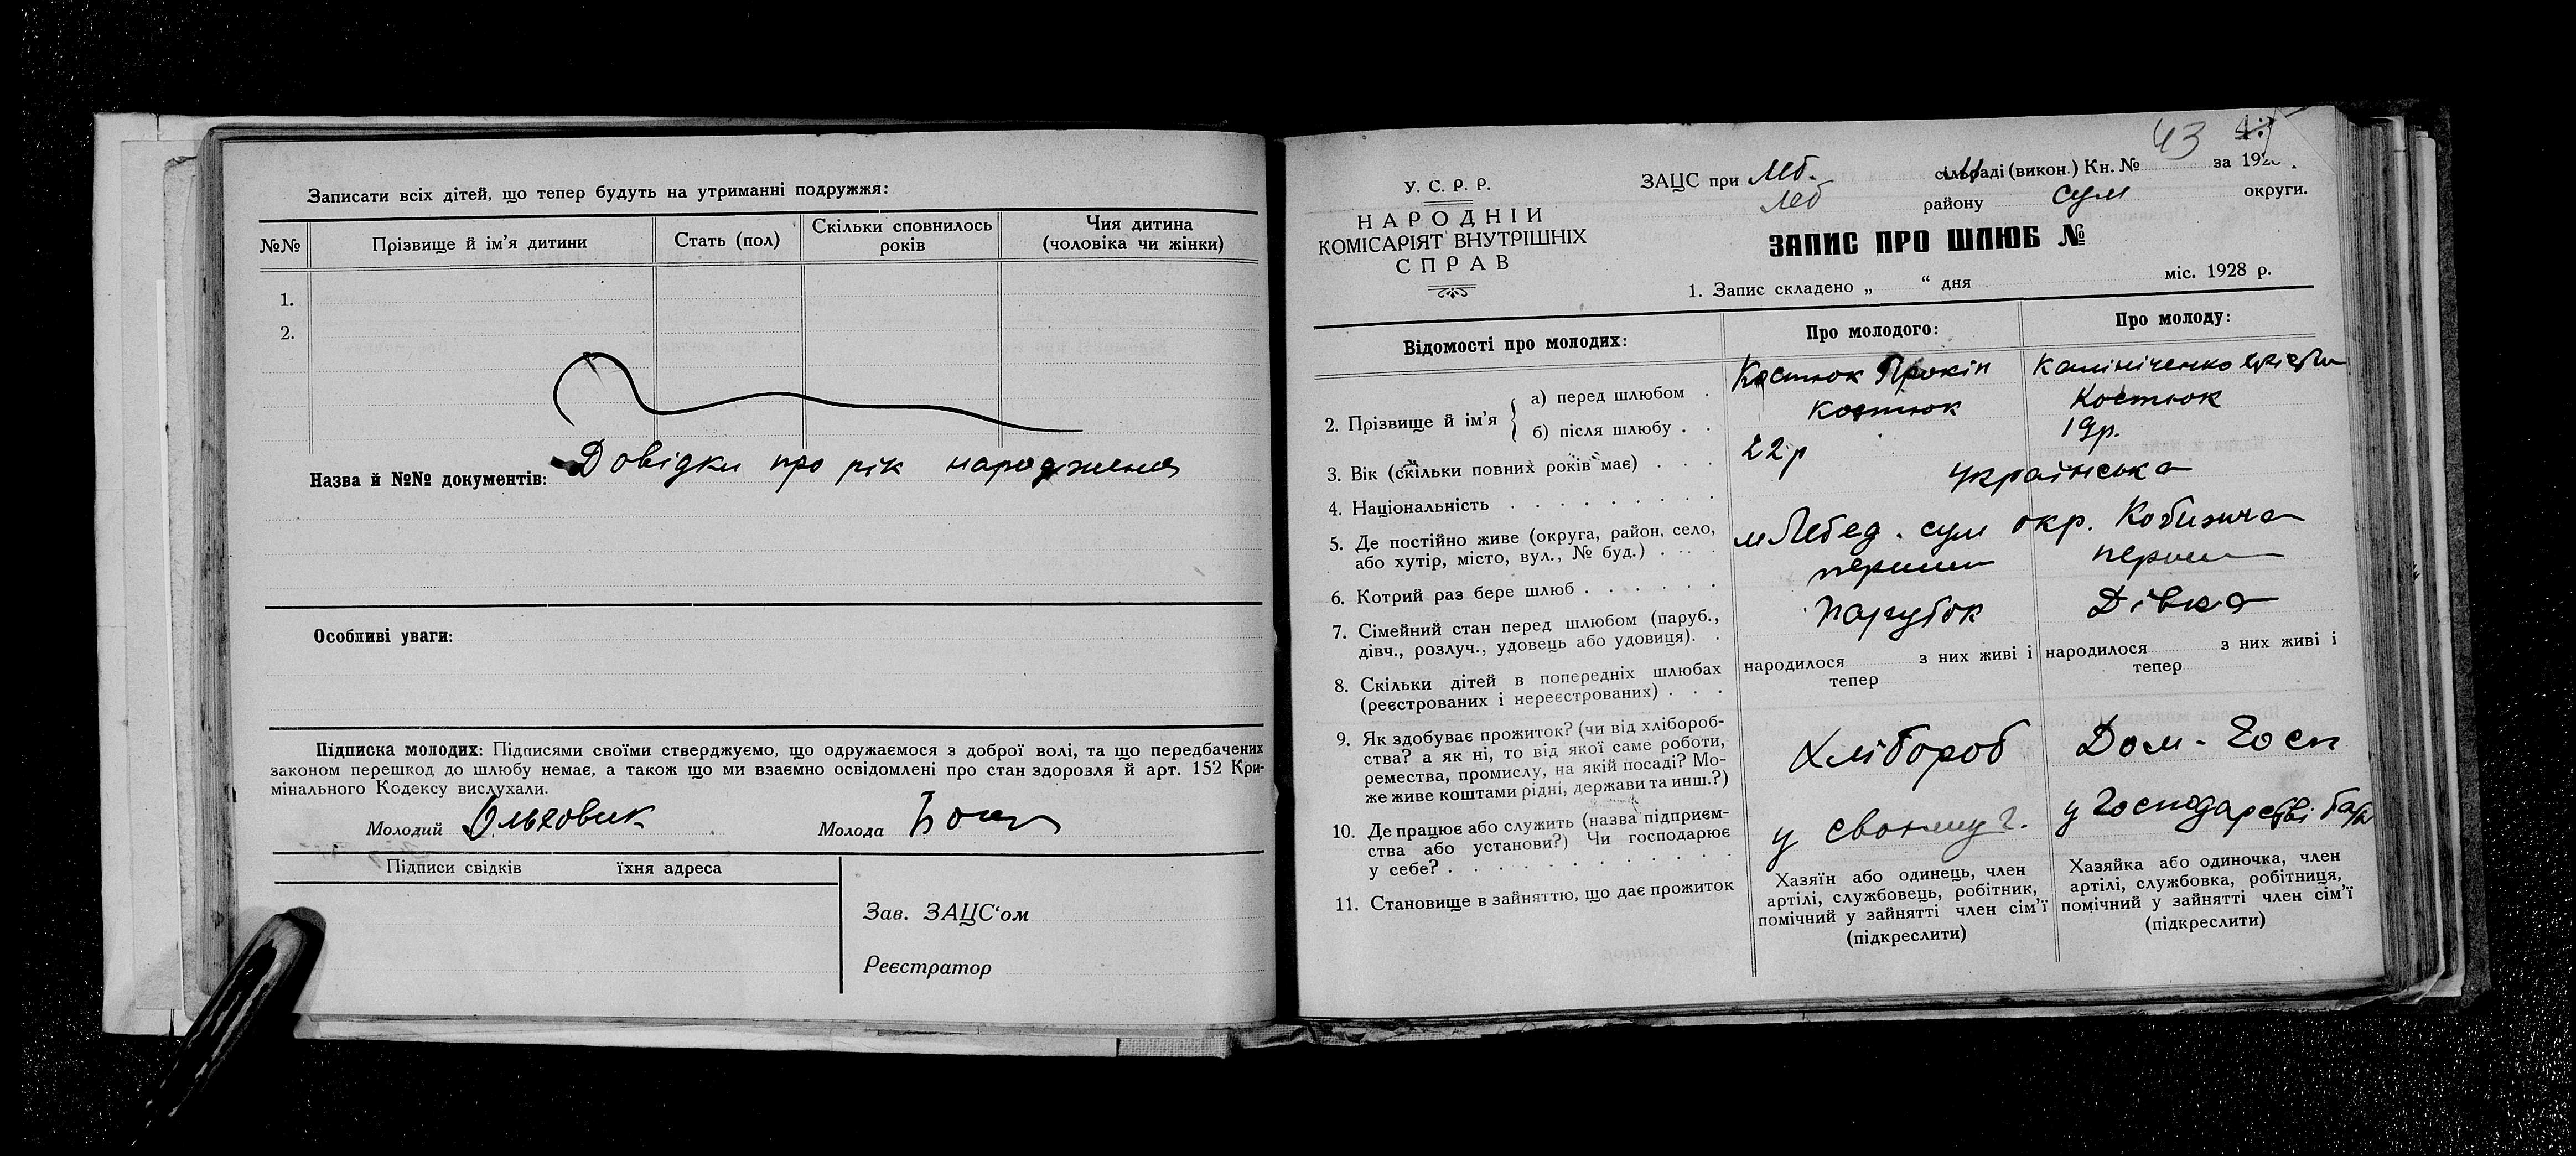 Записати всіх дітей, що тепер будуть на утриманні подружжя:
№№ Прізвище й ім'я дитини Стать (пол) Скільки сповнилось років Чия дитина (чоловіка чи жінки)
1.
2.
Назва й №№ документів: Довідки про рік народження
Особливі уваги:
Підписка молодих: Підписями своїми стверджуємо, що одружаємося з доброї волі, та що передбачених
законом перешкод до шлюбу немає, а також що ми взаємно освідомлені про стан здоровля й арт. 152 Кри-
мінального Кодексу вислухали.
Молодий Ольховик Молода
Підписи свідків їхня адреса
Зав. ЗАЦС'ом
Реєстратор
43
У. С. Р. Р.
НАРОДНІЙ
КОМІСАРІЯТ ВНУТРІШНІХ
СПРАВ
ЗАЦС при Леб. сільраді (викон.) Кн. № за 192
Леб району Сум округи.
ЗАПИС ПРО ШЛЮБ №
1. Запис складено „ “ дня міс. 1928 р.
Відомості про молодих: Про молодого: Про молоду:
2. Прізвище й ім'я
а) перед шлюбом . Костюк Прокіп
б) після шлюбу . . Костюк Костюк
3. Вік (скільки повних років має) . . . 22р 19р.
4. Національність . . . . . . . українська
5. Де постійно живе (округа, район, село,
або хутір, місто, вул., № буд.) . . . м Лебед. сум окр.
6. Котрий раз бере шлюб . . . . . . перший перши
7. Сімейний стан перед шлюбом (паруб.,
дівч., розлуч., удовець або удовиця). . Парубок Дівка
8. Скільки дітей в попередніх шлюбах
(реєстрованих і нереєстрованих) . . .
народилося з них живі і
тепер
народилося з них живі і
тепер
9. Як здобуває прожиток? (чи від хлібороб-
ства? а як ні, то від якої саме роботи,
ремества, промислу, на якій посаді? Мо-
же живе коштами рідні, держави та инш.?)
Хлібороб Дом-Госп
10. Де працює або служить (назва підприєм-
ства або установи?) Чи господарює
у себе? . . . . . . . . . .
у своєму г. у господарстві батьк
11. Становище в зайняттю, що дає прожиток
Хазяїн або одинець, член
артілі, службовець, робітник,
помічний у зайнятті член сім'ї
(підкреслити)
Хазяйка або одиночка, член
артілі, службовка, робітниця,
помічний у зайнятті член сім'ї
(підкреслити)